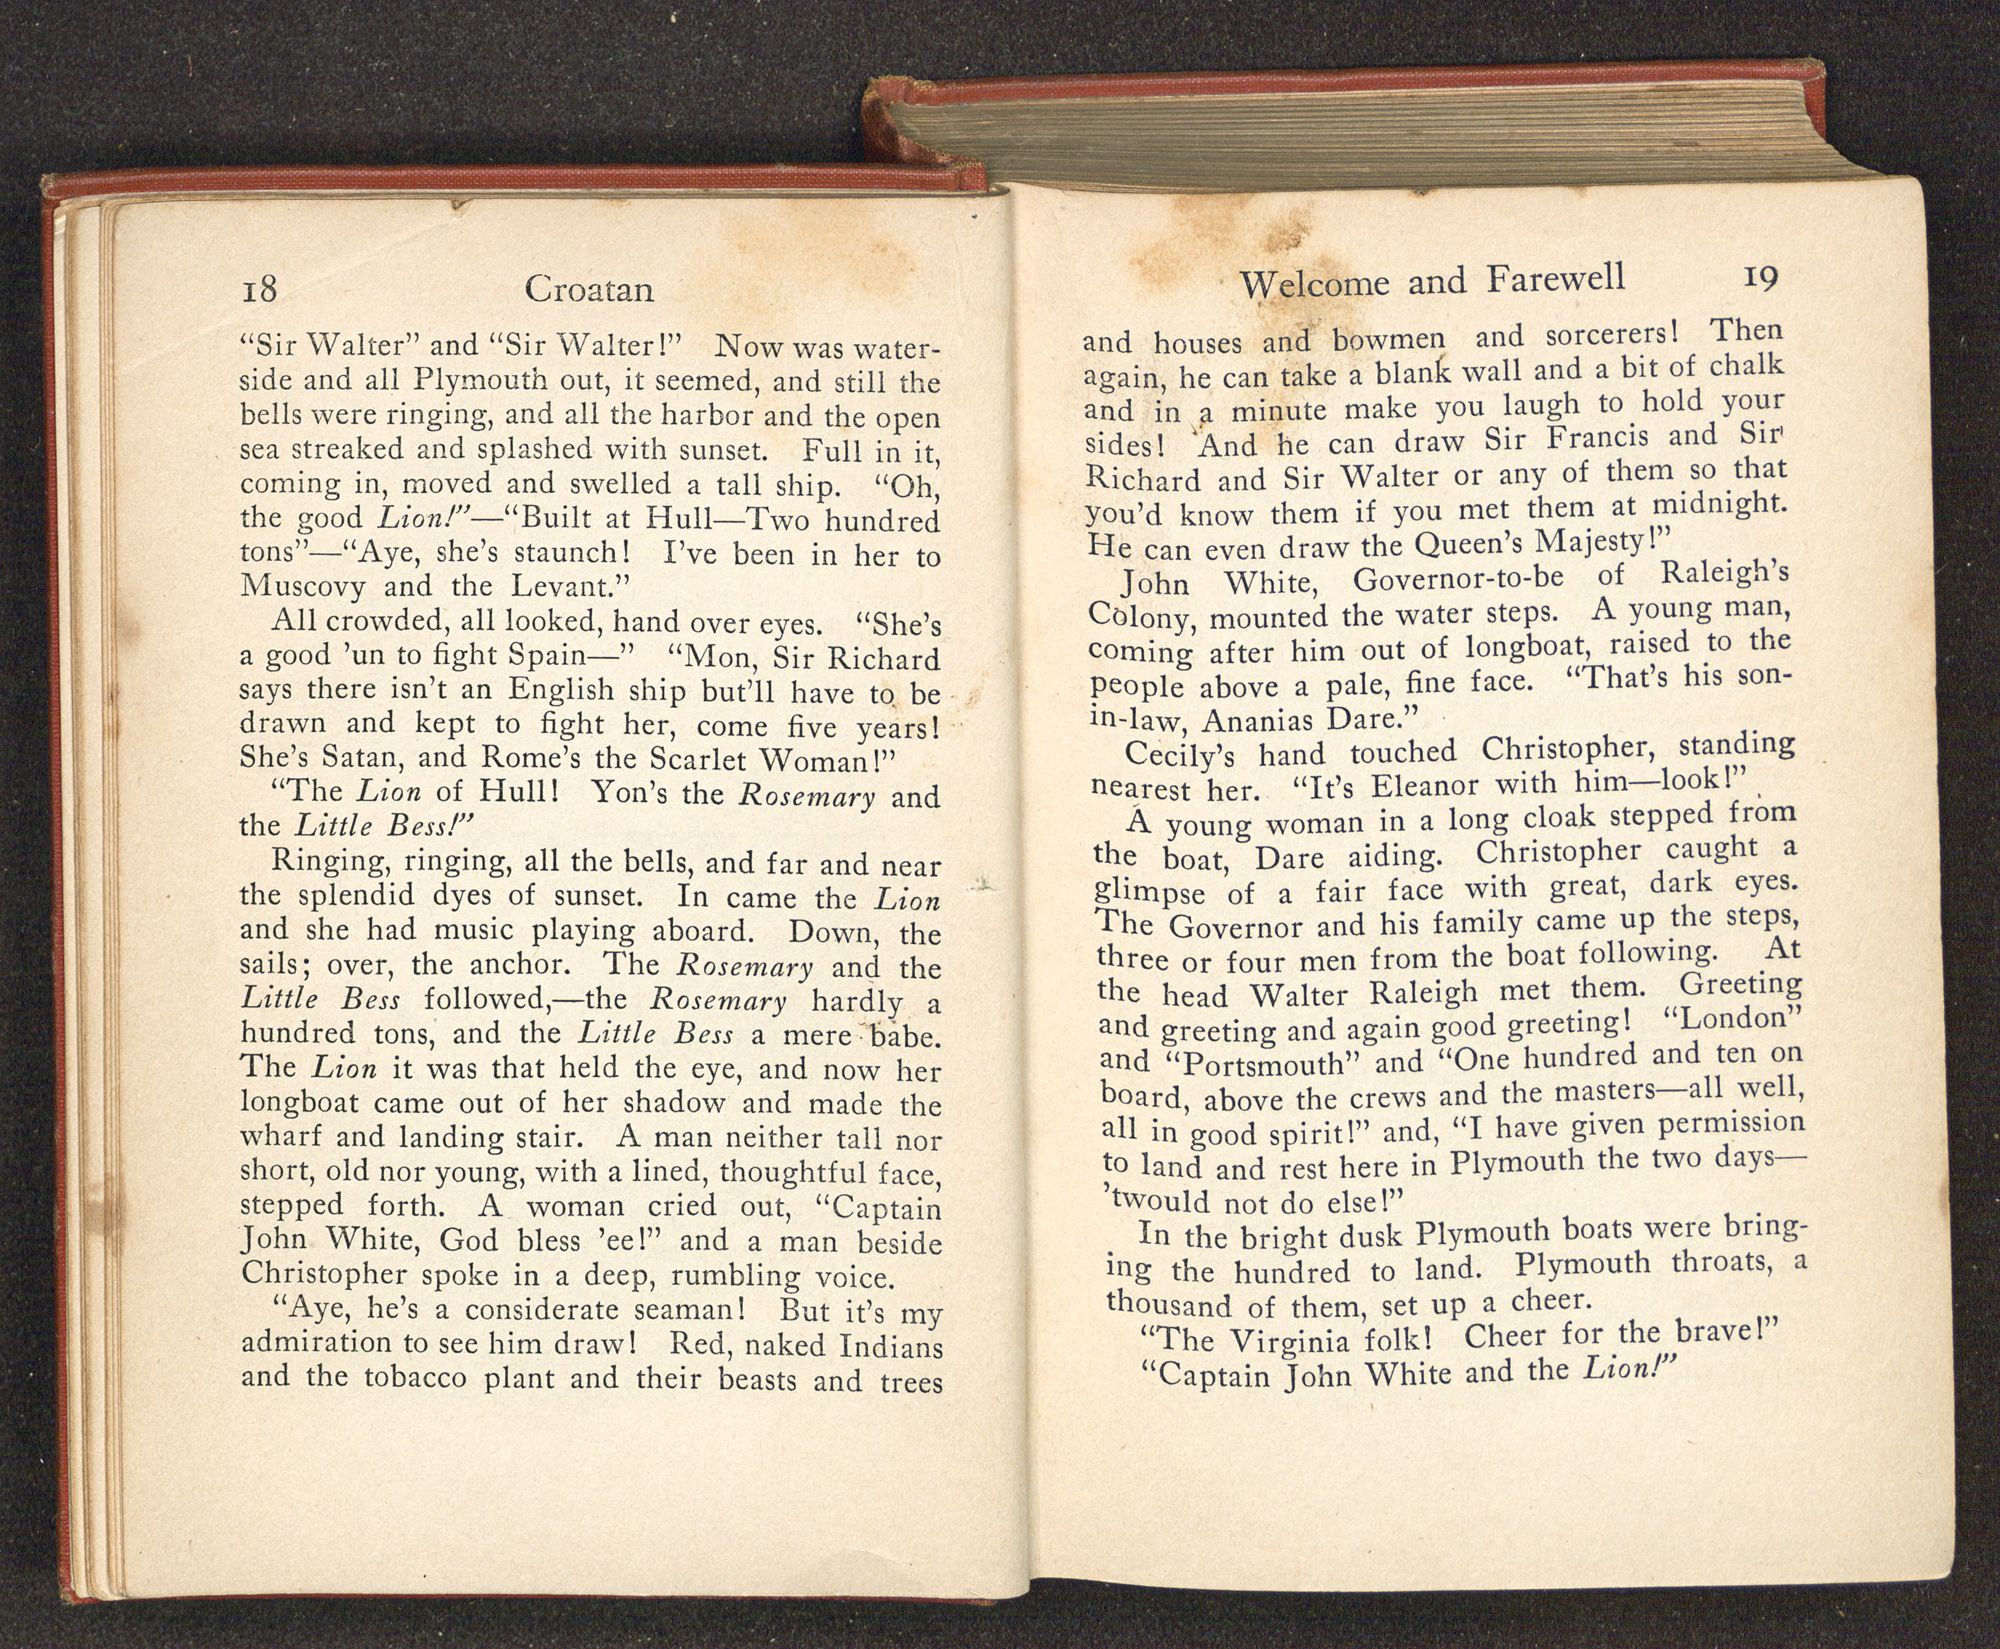 18 Croatan
“Sir Walter” and “Sir Walter!” Now was water-
side and all Plymouth out, it seemed, and still the
bells were ringing, and all the harbor and the open
sea streaked and splashed with sunset. Full in it,
coming in, moved and swelled a tall ship. “Oh,
the good Lion!”—“Built at Hull—Two hundred
tons”—“Aye, she’s staunch! I’ve been in her to
Muscovy and the Levant.”
All crowded, all looked, hand over eyes. “She’s
a good ’un to fight Spain—” “Mon, Sir Richard
says there isn’t an English ship but’ll have to be
drawn and kept to fight her, come five years!
She’s Satan, and Rome’s the Scarlet Woman!”
“The Lion of Hull! Yon’s the Rosemary and
the Little Bess!”
Ringing, ringing, all the bells, and far and near
the splendid dyes of sunset. In came the Lion
and she had music playing aboard. Down, the
sails; over, the anchor. The Rosemary and the
Little Bess followed,—the Rosemary hardly a
hundred tons, and the Little Bess a mere babe.
The Lion it was that held the eye, and now her
longboat came out of her shadow and made the
wharf and landing stair. A man neither tall nor
short, old nor young, with a lined, thoughtful face,
stepped forth. A woman cried out, “Captain
John White, God bless ’ee!” and a man beside
Christopher spoke in a deep, rumbling voice.
“Aye, he’s a considerate seaman! But it’s my
admiration to see him draw! Red, naked Indians
and the tobacco plant and their beasts and trees
Welcome and Farewell 19
and houses and bowmen and sorcerers! Then
again, he can take a blank wall and a bit of chalk
and in a minute make you laugh to hold your
sides! And he can draw Sir Francis and Sir
Richard and Sir Walter or any of them so that
you’d know them if you met them at midnight.
He can even draw the Queen’s Majesty!”
John White, Governor-to-be of Raleigh’s
Colony, mounted the water steps. A young man,
coming after him out of longboat, raised to the
people above a pale, fine face. “That’s his son-
in-law, Ananias Dare.”
Cecily’s hand touched Christopher, standing
nearest her. “It’s Eleanor with him—look!”
A young woman in a long cloak stepped from
the boat, Dare aiding. Christopher caught a
glimpse of a fair face with great, dark eyes.
The Governor and his family came up the steps,
three or four men from the boat following. At
the head Walter Raleigh met them. Greeting
and greeting and again good greeting! “London”
and “Portsmouth” and “One hundred and ten on
board, above the crews and the masters—all well,
all in good spirit!” and, “I have given permission
to land and rest here in Plymouth the two days—
’twould not do else!”
In the bright dusk Plymouth boats were bring-
ing the hundred to land. Plymouth throats, a
thousand of them, set up a cheer.
“The Virginia folk! Cheer for the brave!”
“Captain John White and the Lion!”